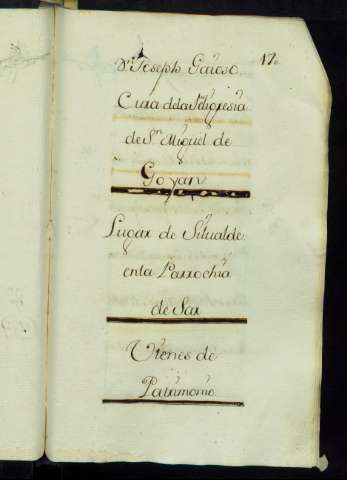 17.
Dn. Joseph Gaioso
Cura dela Feligresia
de Sn. Miguel de
Goyan
Lugar de Situalde
enla Parrochia
de Sar
Vienes de
Patrimonio